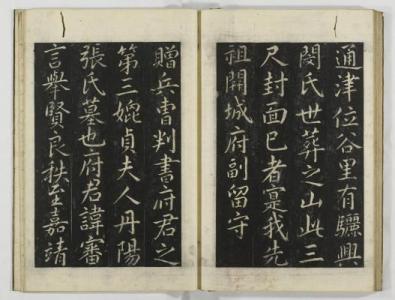 通津位谷里有驪興
閔氏世葬之山此三
尺封面巳者寔我先
祖開城府副留守
贈兵曺判書府君之
第三媲貞夫人丹陽
張氏墓也府君諱審
言舉賢良秩至嘉靖